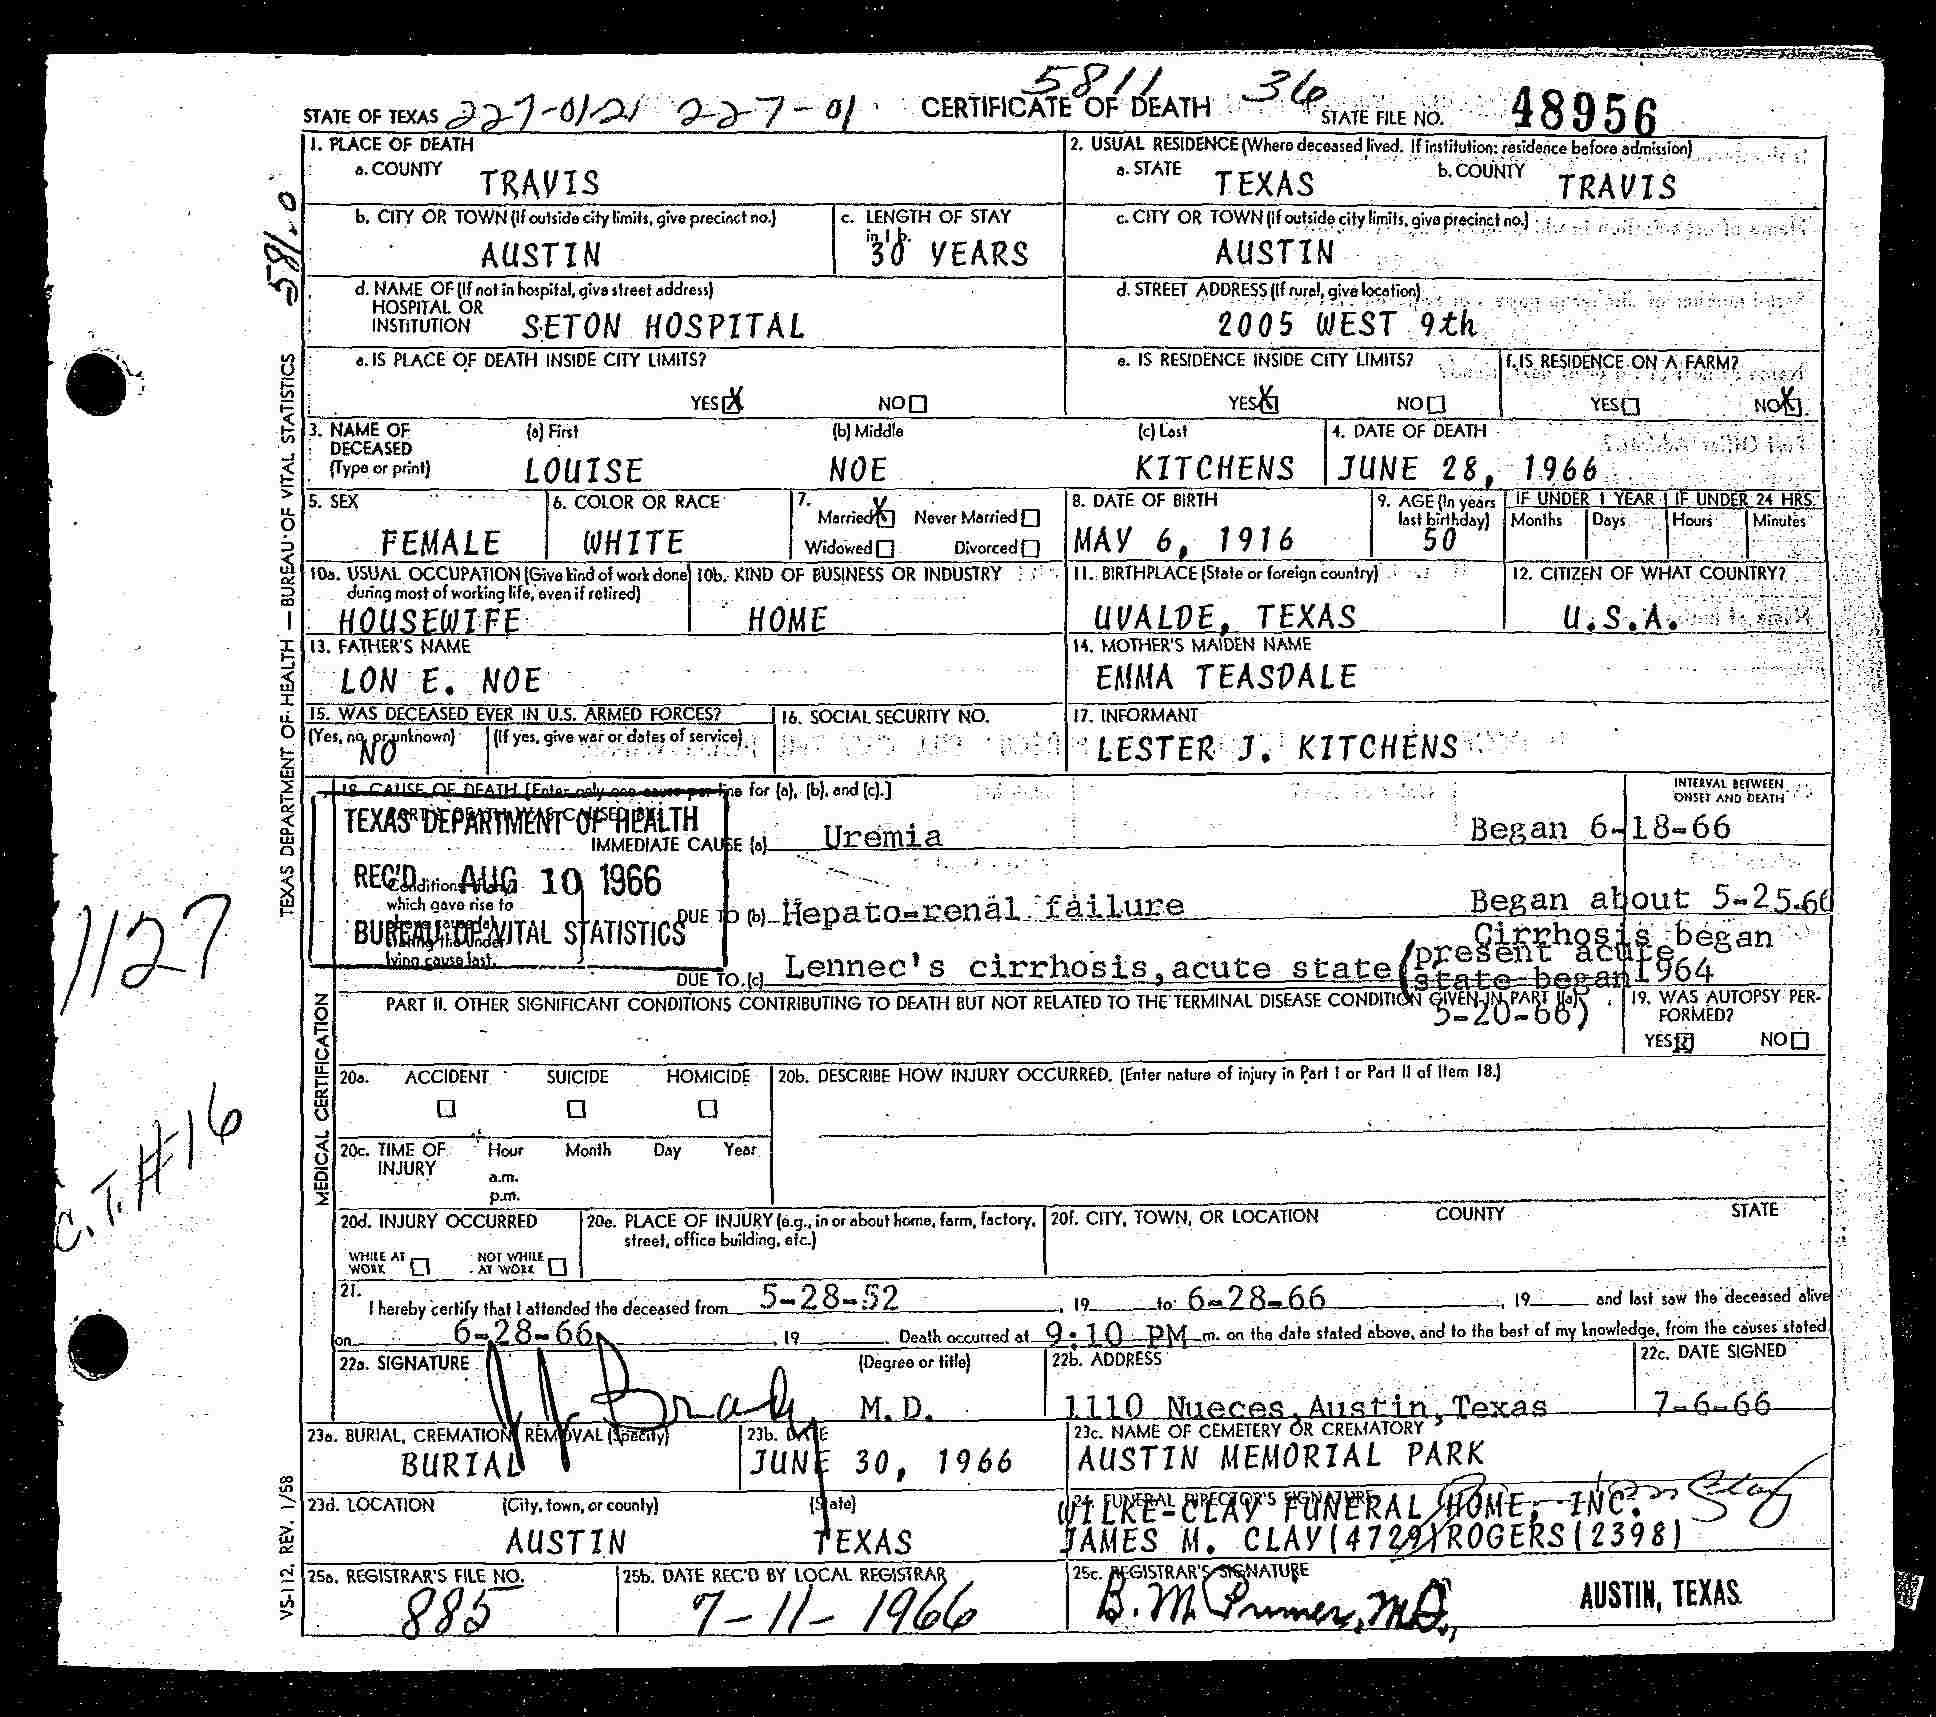 5811 36
STATE OF TEXAS 227-0121 227-01 CERTIFICATE OF DEATH STATE FILE NO. 48956
1. PLACE OF DEATH
a. COUNTY TRAVIS
2. USUAL RESIDENCE (Where deceased lived. If institution: residence before admission)
a. STATE TEXAS b. COUNTY TRAVIS
b. CITY OR TOWN (If outside city limits, give precinct no.) AUSTIN
c. LENGTH OF STAY in 1 b. 30 YEARS
c. CITY OR TOWN (If outside city limits, give precinct no.) AUSTIN
d. NAME OF (If not in hospital, give street address)
HOSPITAL OR
INSTITUTION SETON HOSPITAL
d. STREET ADDRESS (If rural, give location)
2005 WEST 9th
e. IS PLACE OF DEATH INSIDE CITY LIMITS?
YES X NO
e. IS RESIDENCE INSIDE CITY LIMITS?
YES X NO
f. IS RESIDENCE ON A FARM?
YES NO X
3. NAME OF DECEASED (Type or print)
(a) First LOUISE
(b) Middle NOE
(c) Last KITCHENS
4. DATE OF DEATH
JUNE 28, 1966
5. SEX FEMALE
6. COLOR OR RACE WHITE
7. Married X Never Married
Widowed Divorced
8. DATE OF BIRTH MAY 6, 1916
9. AGE (In years last birthday) 50
IF UNDER 1 YEAR Months Days
IF UNDER 24 HRS. Hours Minutes
10a. USUAL OCCUPATION (Give kind of work done during most of working life, even if retired)
HOUSEWIFE
10b. KIND OF BUSINESS OR INDUSTRY
HOME
11. BIRTHPLACE (State or foreign country)
UVALDE, TEXAS
12. CITIZEN OF WHAT COUNTRY?
U.S.A.
13. FATHER'S NAME
LON E. NOE
14. MOTHER'S MAIDEN NAME
EMMA TEASDALE
15. WAS DECEASED EVER IN U.S. ARMED FORCES?
(Yes, no, or unknown) NO (If yes, give war or dates of service)
16. SOCIAL SECURITY NO.
17. INFORMANT
LESTER J. KITCHENS
18. CAUSE OF DEATH [Enter only one cause per line for (a), (b), and (c).]
INTERVAL BETWEEN ONSET AND DEATH
TEXAS DEPARTMENT OF HEALTH
REC'D AUG 10 1966
BUREAU OF VITAL STATISTICS
IMMEDIATE CAUSE (a) Uremia Began 6-18-66
which gave rise to
lying cause last.
DUE TO (b) Hepato-renal failure Began about 5-25-66
DUE TO (c) Lennec's cirrhosis, acute state (present acute state began 5-20-66)
Cirrhosis began 1964
PART II. OTHER SIGNIFICANT CONDITIONS CONTRIBUTING TO DEATH BUT NOT RELATED TO THE TERMINAL DISEASE CONDITION GIVEN IN PART I(a)
19. WAS AUTOPSY PERFORMED?
YES X NO
20a. ACCIDENT SUICIDE HOMICIDE
20b. DESCRIBE HOW INJURY OCCURRED. (Enter nature of injury in Part I or Part II of Item 18.)
20c. TIME OF INJURY Hour Month Day Year
a.m.
p.m.
20d. INJURY OCCURRED
WHILE AT WORK NOT WHILE AT WORK
20e. PLACE OF INJURY (e.g., in or about home, farm, factory, street, office building, etc.)
20f. CITY, TOWN, OR LOCATION COUNTY STATE
21. I hereby certify that I attended the deceased from 5-28-52, 19 to 6-28-66, 19 and last saw the deceased alive
on 6-28-66, 19 . Death occurred at 9:10 PM m. on the date stated above, and to the best of my knowledge, from the causes stated
22a. SIGNATURE (Degree or title)
J. J. Brady M.D.
22b. ADDRESS
1110 Nueces, Austin, Texas
22c. DATE SIGNED
7-6-66
23a. BURIAL, CREMATION, REMOVAL (Specify)
BURIAL
23b. DATE
JUNE 30, 1966
23c. NAME OF CEMETERY OR CREMATORY
AUSTIN MEMORIAL PARK
23d. LOCATION (City, town, or county) (State)
AUSTIN TEXAS
24. FUNERAL DIRECTOR'S SIGNATURE
WILKE-CLAY FUNERAL HOME, INC.
JAMES M. CLAY (4729) ROGERS (2398)
25a. REGISTRAR'S FILE NO.
885
25b. DATE REC'D BY LOCAL REGISTRAR
7-11-1966
25c. REGISTRAR'S SIGNATURE
B. M. Primer, M.D., AUSTIN, TEXAS.
TEXAS DEPARTMENT OF HEALTH — BUREAU OF VITAL STATISTICS
MEDICAL CERTIFICATION
VS-112, REV. 1/58
581.0
1127
C.T.#16